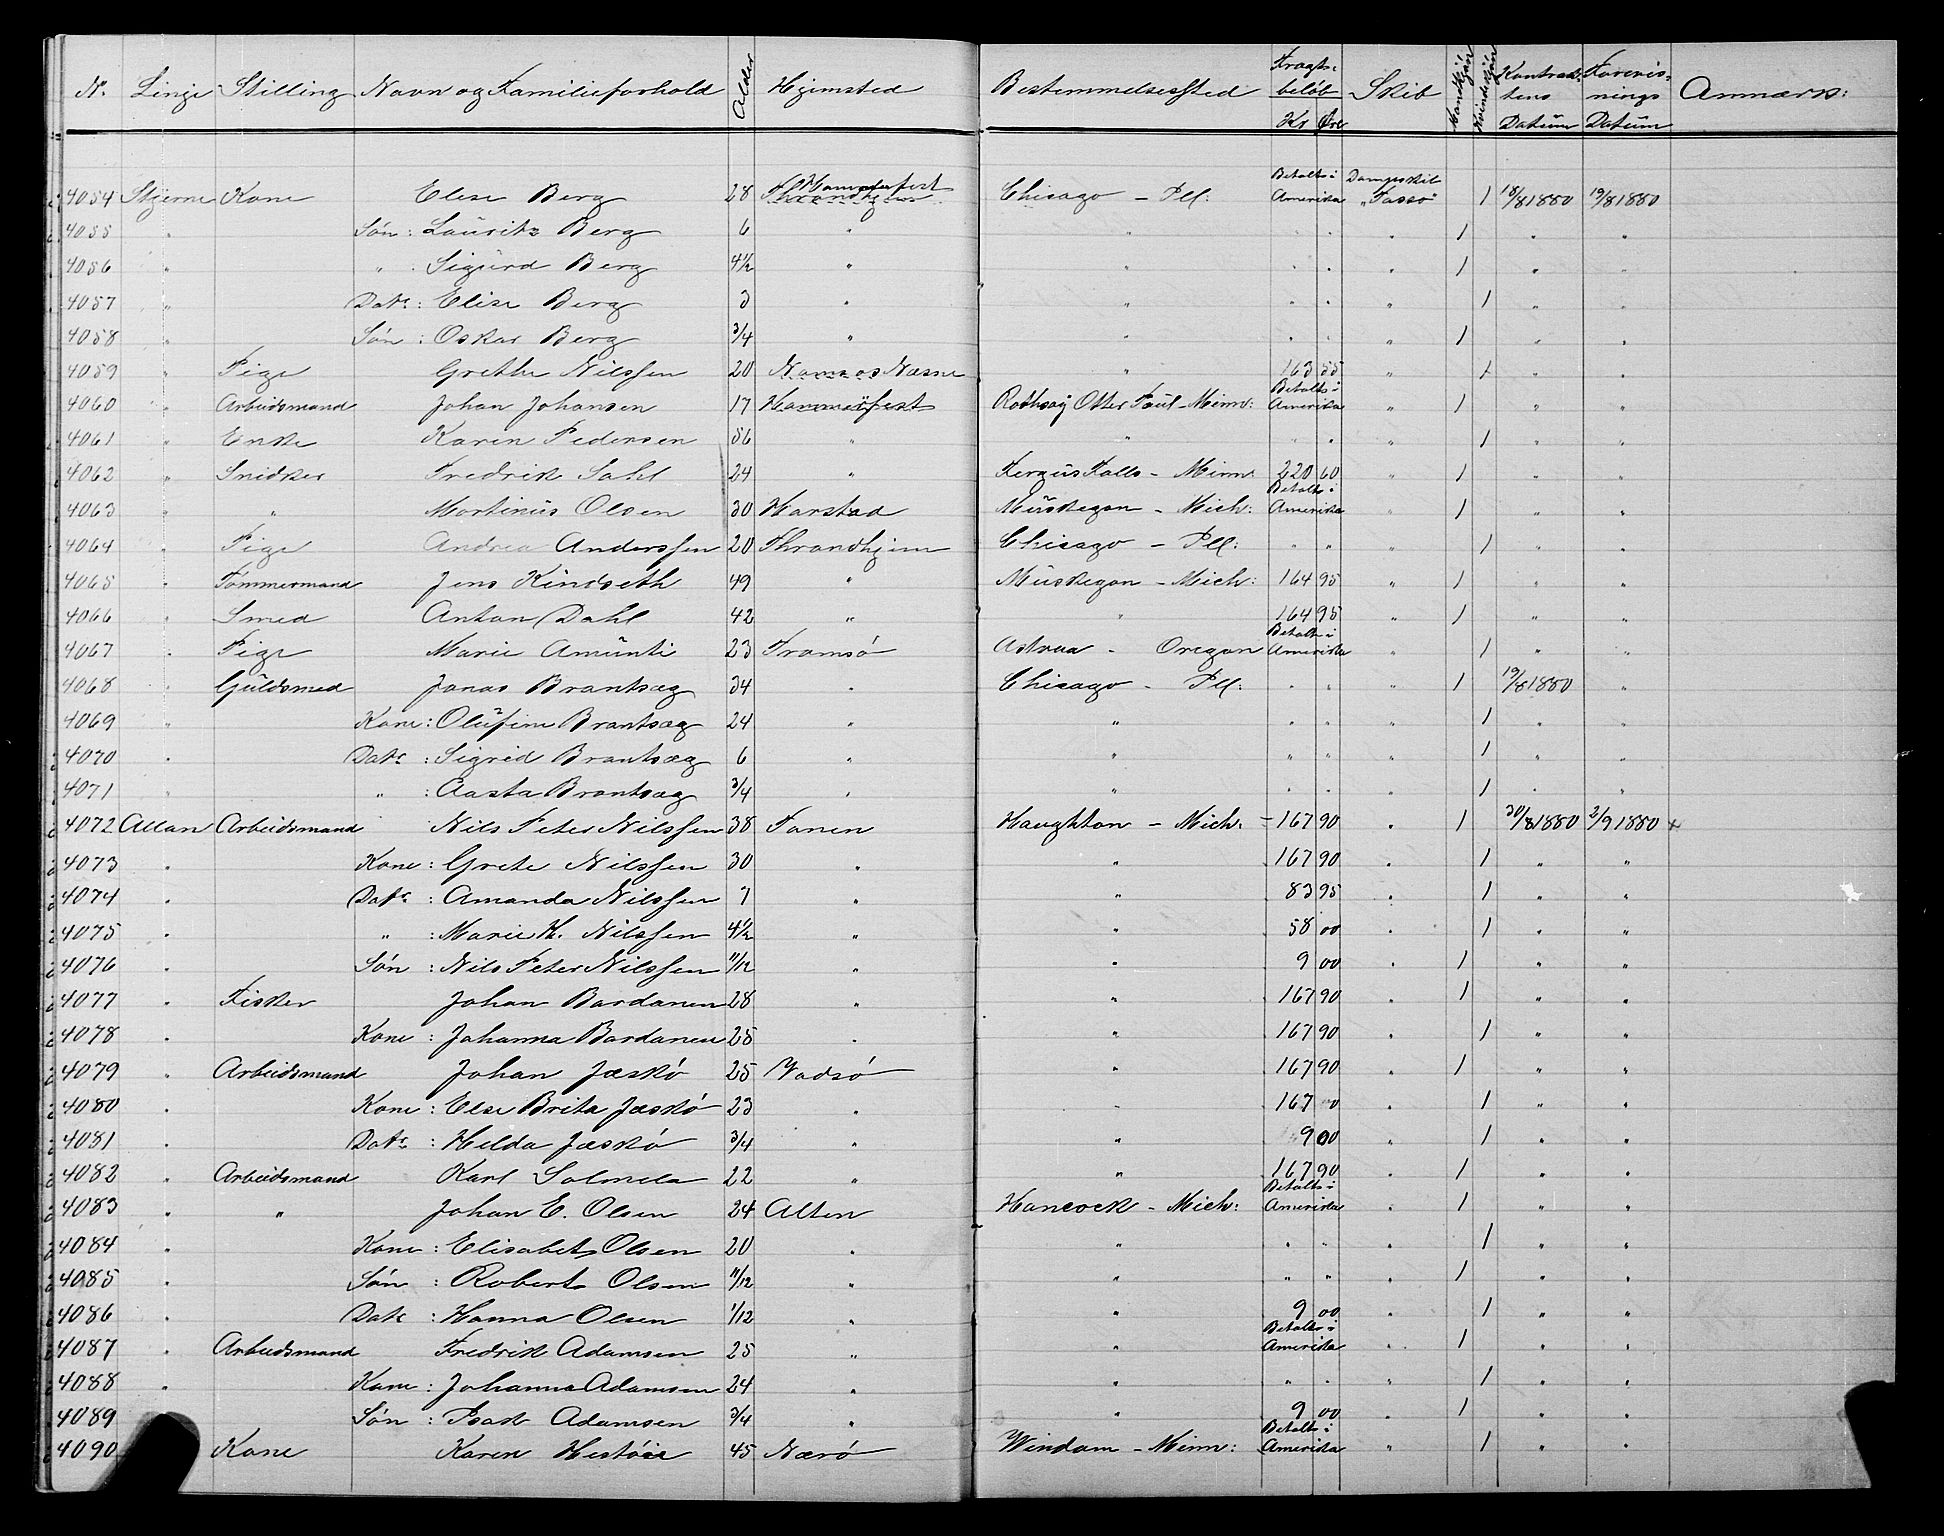 N. Linje Stilling Navn og Familieforhold Alder Hjemsted Bestemmelsessted Fragtbeløb Kr Øre Skib Mandkjøn Kvindekjøn Kontraktens Datum Forevisnings Datum Anmærk:
4054 Stjerne Kone Elise Berg 28 Hammerfest Chicago - Ill: Betalt i Amerika Dampskib "Tasso" 1 18/8 1880 19/8 1880
4055 " Søn: Lauritz Berg 6 " " " " " 1 " "
4056 " " : Sigurd Berg 4½ " " " " " 1 " "
4057 " Datr: Elise Berg 3 " " " " " 1 " "
4058 " Søn: Oskar Berg 3/4 " " " " " 1 " "
4059 " Pige Grethe Nilssen 20 Namsos Næsne " 163 55 " 1 " "
4060 " Arbeidsmand Johan Johansen 17 Hammerfest Rothsay Otter Taul - Minn: Betalt i Amerika " 1 " "
4061 " Enke Karen Pedersen 56 " " " " 1 " "
4062 " Snidker Fredrik Dahl 24 " Fergus Falls - Minn: 220 60 " 1 " "
4063 " " Martinus Olsen 30 Harstad Muskegon - Mich: Betalt i Amerika " 1 " "
4064 " Pige Andrea Anderssen 20 Throndhjem Chicago - Ill: " " " 1 " "
4065 " Tømmermand Jens Kindseth 49 " Muskegon - Mich: 164 95 " 1 " "
4066 " Smed Anton Dahl 42 " " 164 95 " 1 " "
4067 " Pige Marie Amunti 23 Tromsø Astrua - Oregon Betalt i Amerika " 1 " "
4068 " Guldsmed Jonas Brantsæg 34 " Chicago - Ill: " " " 1 19/8 1880 "
4069 " Kone: Olufine Brantsæg 24 " " " " " 1 " "
4070 " Datr: Sigrid Brantsæg 6 " " " " " 1 " "
4071 " " : Aasta Brantsæg 3/4 " " " " " 1 " "
4072 Allan Arbeidsmand Nils Peter Nilssen 38 Tanen Haughton - Mich: 167 90 " 1 30/8 1880 2/9 1880 x
4073 Kone: Grete Nilssen 30 " " 167 90 " 1 " "
4074 " Datr: Amanda Nilssen 7 " " 83 95 " 1 " "
4075 " " : Marie K. Nilssen 4½ " " 58 00 " 1 " "
4076 " Søn: Nils Peter Nilssen 11/12 " " 9 00 " 1 " "
4077 " Fisker Johan Bardanen 28 " " 167 90 " 1 " "
4078 " Kone: Johanna Bardanen 25 " " 167 90 " 1 " "
4079 " Arbeidsmand Johan Jæskø 25 Vadsø " 167 90 " 1 " "
4080 " Kone: Else Brita Jæskø 23 " " 167 " 1 " "
4081 " Datr: Hilda Jæskø 3/4 " " 9 00 " 1 " "
4082 " Arbeidsmand Karl Salmela 22 " " 167 90 " 1 " "
4083 " " Johan E. Olsen 24 Alten Hancock - Mich: Betalt i Amerika " 1 " "
4084 " Kone: Elisabet Olsen 20 " " " " " 1 " "
4085 " Søn: Robert Olsen 11/12 " " " " " 1 " "
4086 " Datr: Hanna Olsen 1/12 " " 9 00 " 1 " "
4087 " Arbeidsmand Fredrik Adamsen 25 " " Betalt i Amerika " 1 " "
4088 " Kone: Johanna Adamsen 24 " " " " " 1 " "
4089 Søn: Isak Adamsen 3/4 " " 9 00 " 1 " "
4090 Kone Karen 45 Nærø Windam - Minn: Betalt i Amerika " 1 " "